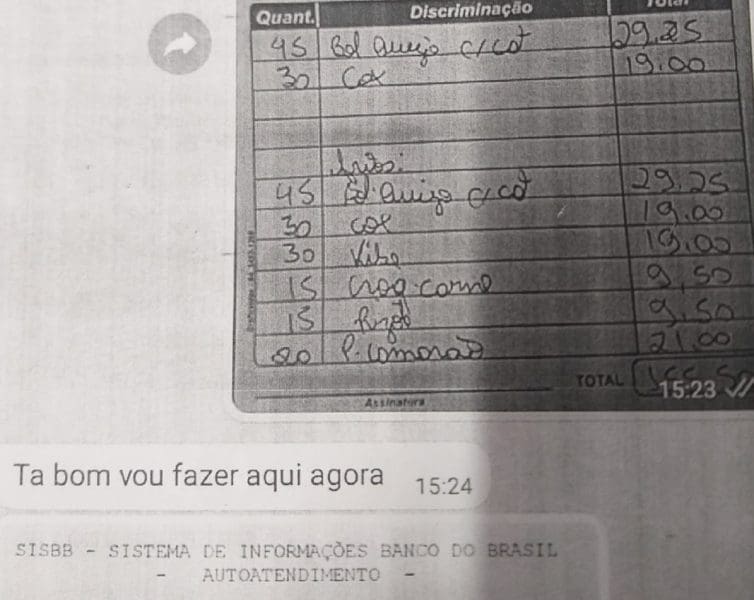 Quant. Discriminação Total
45 Bol Queijo c/cat 29,25
30 Cox 19.00
45 Bol Queijo c/cat 29,25
30 cox 19,00
30 Kibe 19,00
15 Croq. carne 9,50
15 9,50
20 P. camarão 21,00
TOTAL
15:23
Assinatura
Ta bom vou fazer aqui agora 15:24
SISBB - SISTEMA DE INFORMAÇÕES BANCO DO BRASIL
- AUTOATENDIMENTO -